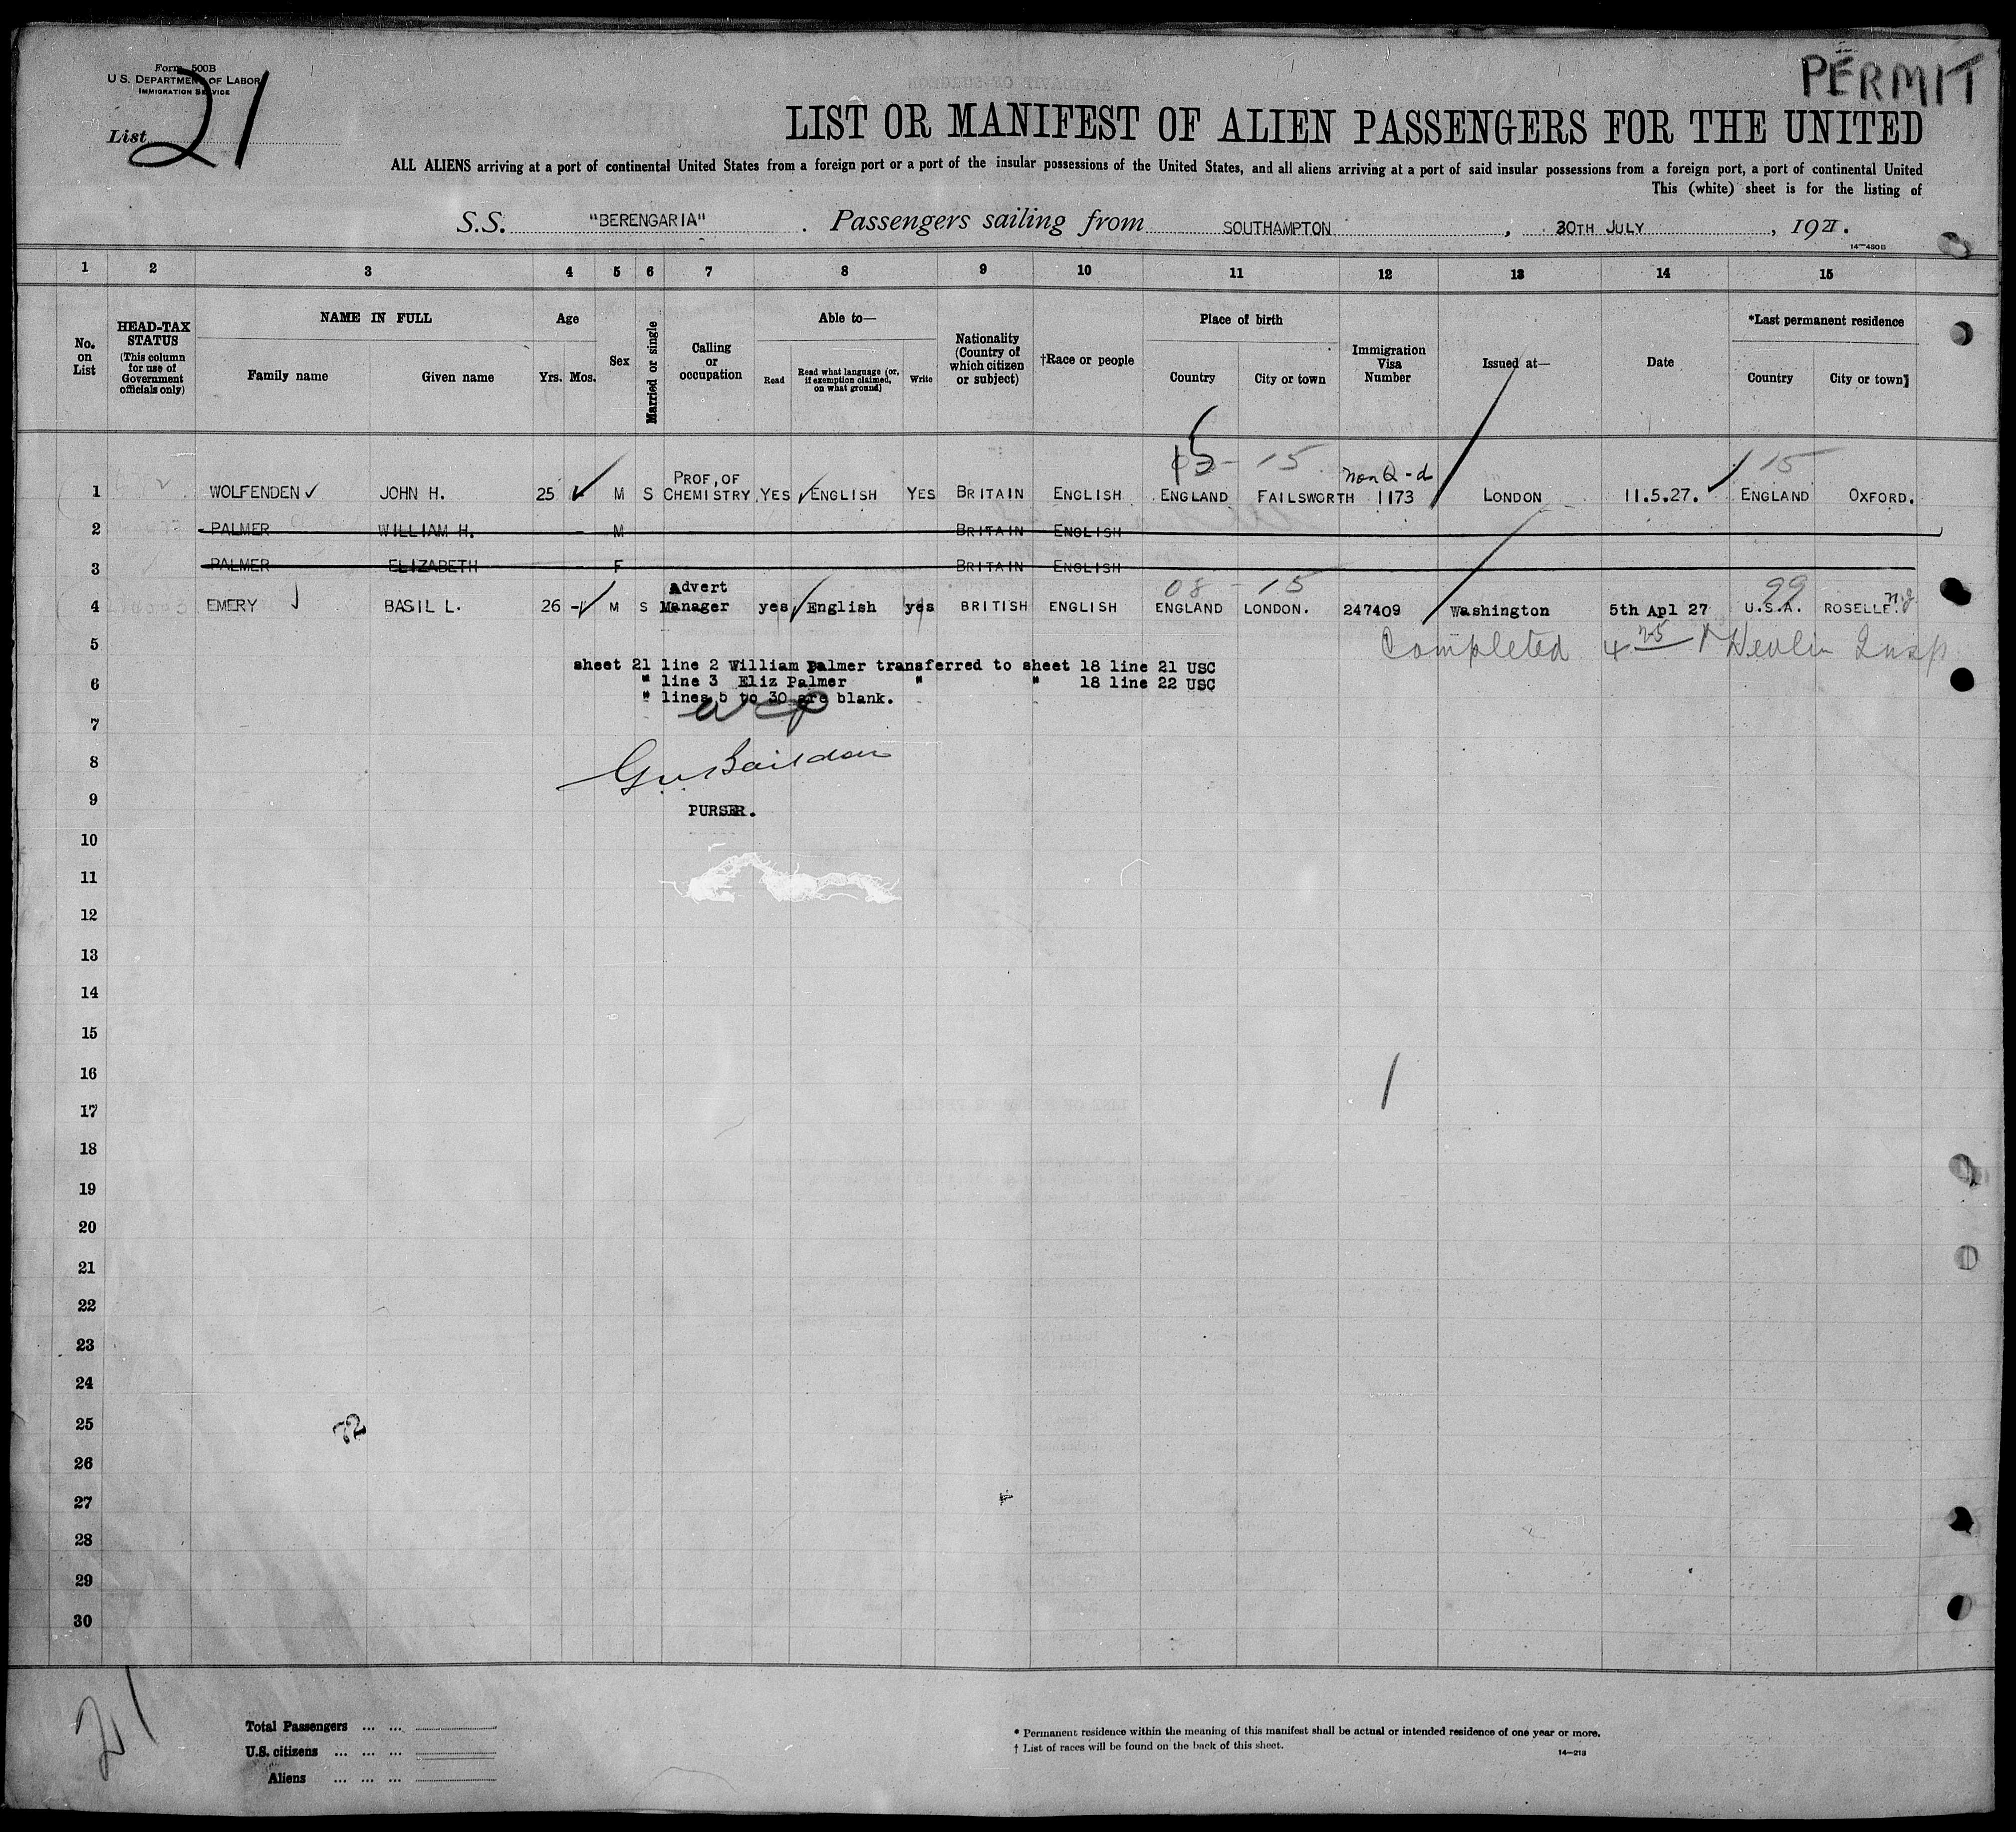 PERMIT
Form 500B
U.S. DEPARTMENT OF LABOR
IMMIGRATION SERVICE
List 21
LIST OR MANIFEST OF ALIEN PASSENGERS FOR THE UNITED
ALL ALIENS arriving at a port of continental United States from a foreign port or a port of the insular possessions of the United States, and all aliens arriving at a port of said insular possessions from a foreign port, a port of continental United
This (white) sheet is for the listing of
S.S. "BERENGARIA". Passengers sailing from SOUTHAMPTON, 30TH JULY, 19
14—480B
1 2 3 4 5 6 7 8 9 10 11 12 13 14 15
No. on List
HEAD-TAX STATUS (This column for use of Government officials only)
NAME IN FULL
Family name Given name
Age
Yrs. Mos.
Sex
Married or single
Calling or occupation
Able to—
Read Read what language [or, if exemption claimed, on what ground] Write
Nationality (Country of which citizen or subject)
†Race or people
Place of birth
Country City or town
Immigration Visa Number
Issued at—
Date
*Last permanent residence
Country City or town
15 15 non Q-d 15
1 WOLFENDEN JOHN H. 25 M S PROF, OF CHEMISTRY YES ENGLISH YES BRITAIN ENGLISH ENGLAND FAILSWORTH 1173 LONDON 11.5.27. ENGLAND OXFORD.
2 PALMER WILLIAM H. M BRITAIN ENGLISH
3 PALMER ELIZABETH F BRITAIN ENGLISH
08 - 15 99
4 EMERY BASIL L. 26 - M S Advert Manager yes English yes BRITISH ENGLISH ENGLAND LONDON. 247409 Washington 5th Apl 27 U.S.A. ROSELLE. N.J
5 Completed 4 25 Devlin Insp
sheet 21 line 2 William Palmer transferred to sheet 18 line 21 USC
6 " line 3 Eliz Palmer " " 18 line 22 USC
" lines 5 to 30 are blank.
7
8
9 PURSER.
10
11
12
13
14
15
16
17
18
19
20
21
22
23
24
25 72
26
27
28
29
30
21
Total Passengers ... ...
U.S. citizens ... ... ...
Aliens ... ... ...
* Permanent residence within the meaning of this manifest shall be actual or intended residence of one year or more.
† List of races will be found on the back of this sheet.
14—213